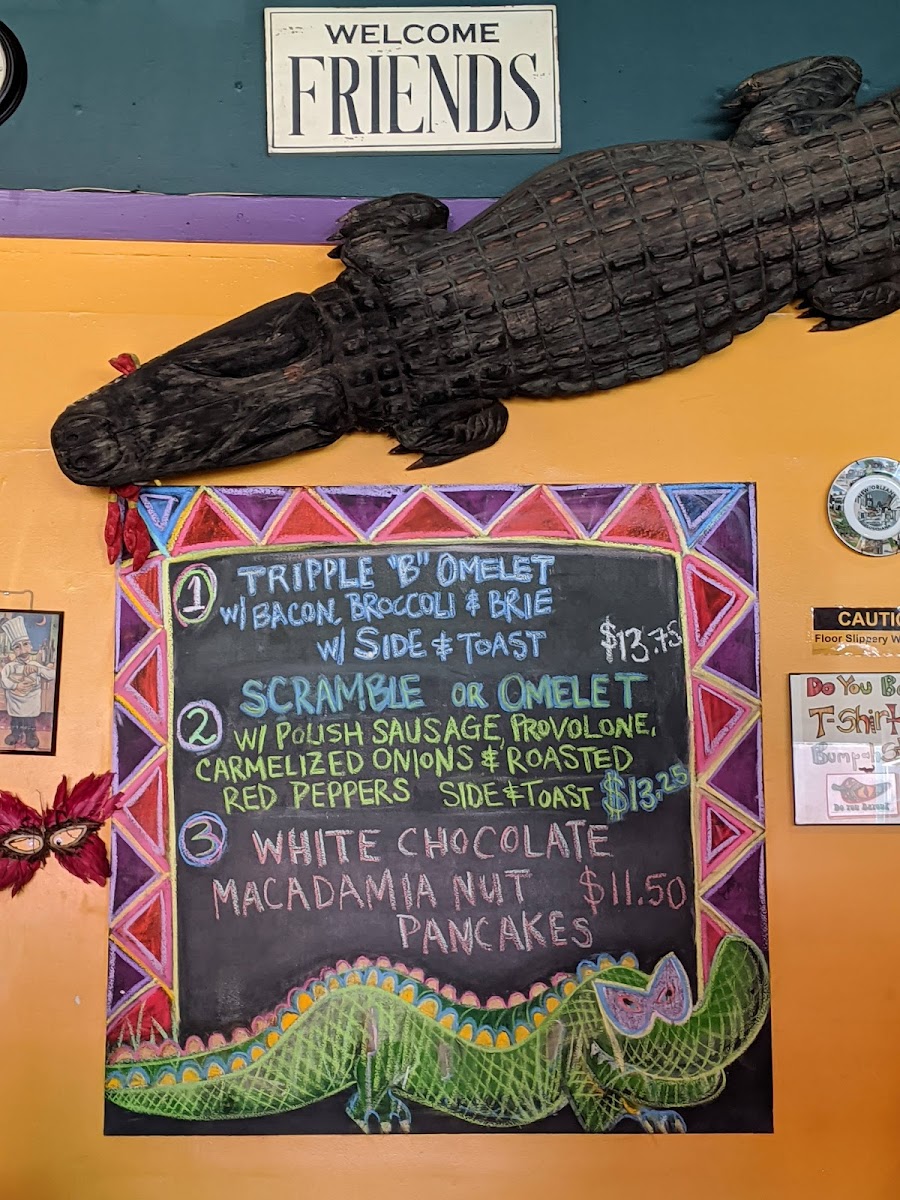 WELCOME
FRIENDS
1 TRIPPLE "B" OMELET
W/ BACON, BROCCOLI & BRIE
W/ SIDE & TOAST $13.75
SCRAMBLE OR OMELET
2 W/ POLISH SAUSAGE, PROVOLONE,
CARMELIZED ONIONS & ROASTED
RED PEPPERS SIDE & TOAST $13.25
3 WHITE CHOCOLATE
MACADAMIA NUT $11.50
PANCAKES
NEW ORLEANS
CAUTIO
Floor Slippery W
Do You B
T-Shirt